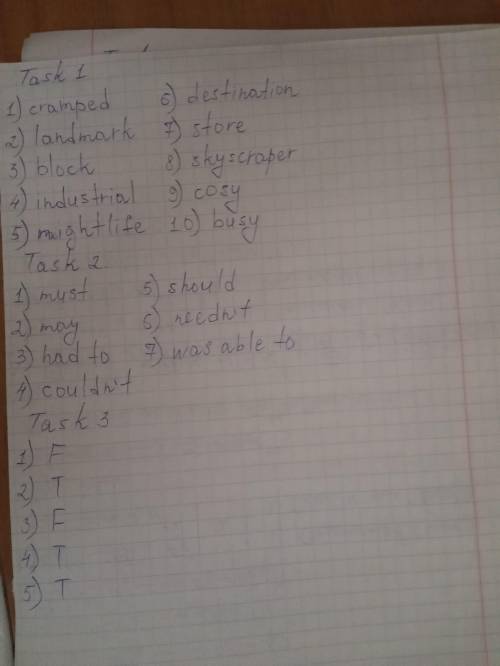 Task 1
1) cramped 6) destination
2) landmark 7) store
3) block 8) skyscraper
4) industrial 9) cosy
5) nightlife 10) busy
Task 2
1) must 5) should
2) may 6) needn't
3) had to 7) was able to
4) couldn't
Task 3
1) F
2) T
3) F
4) T
5) T